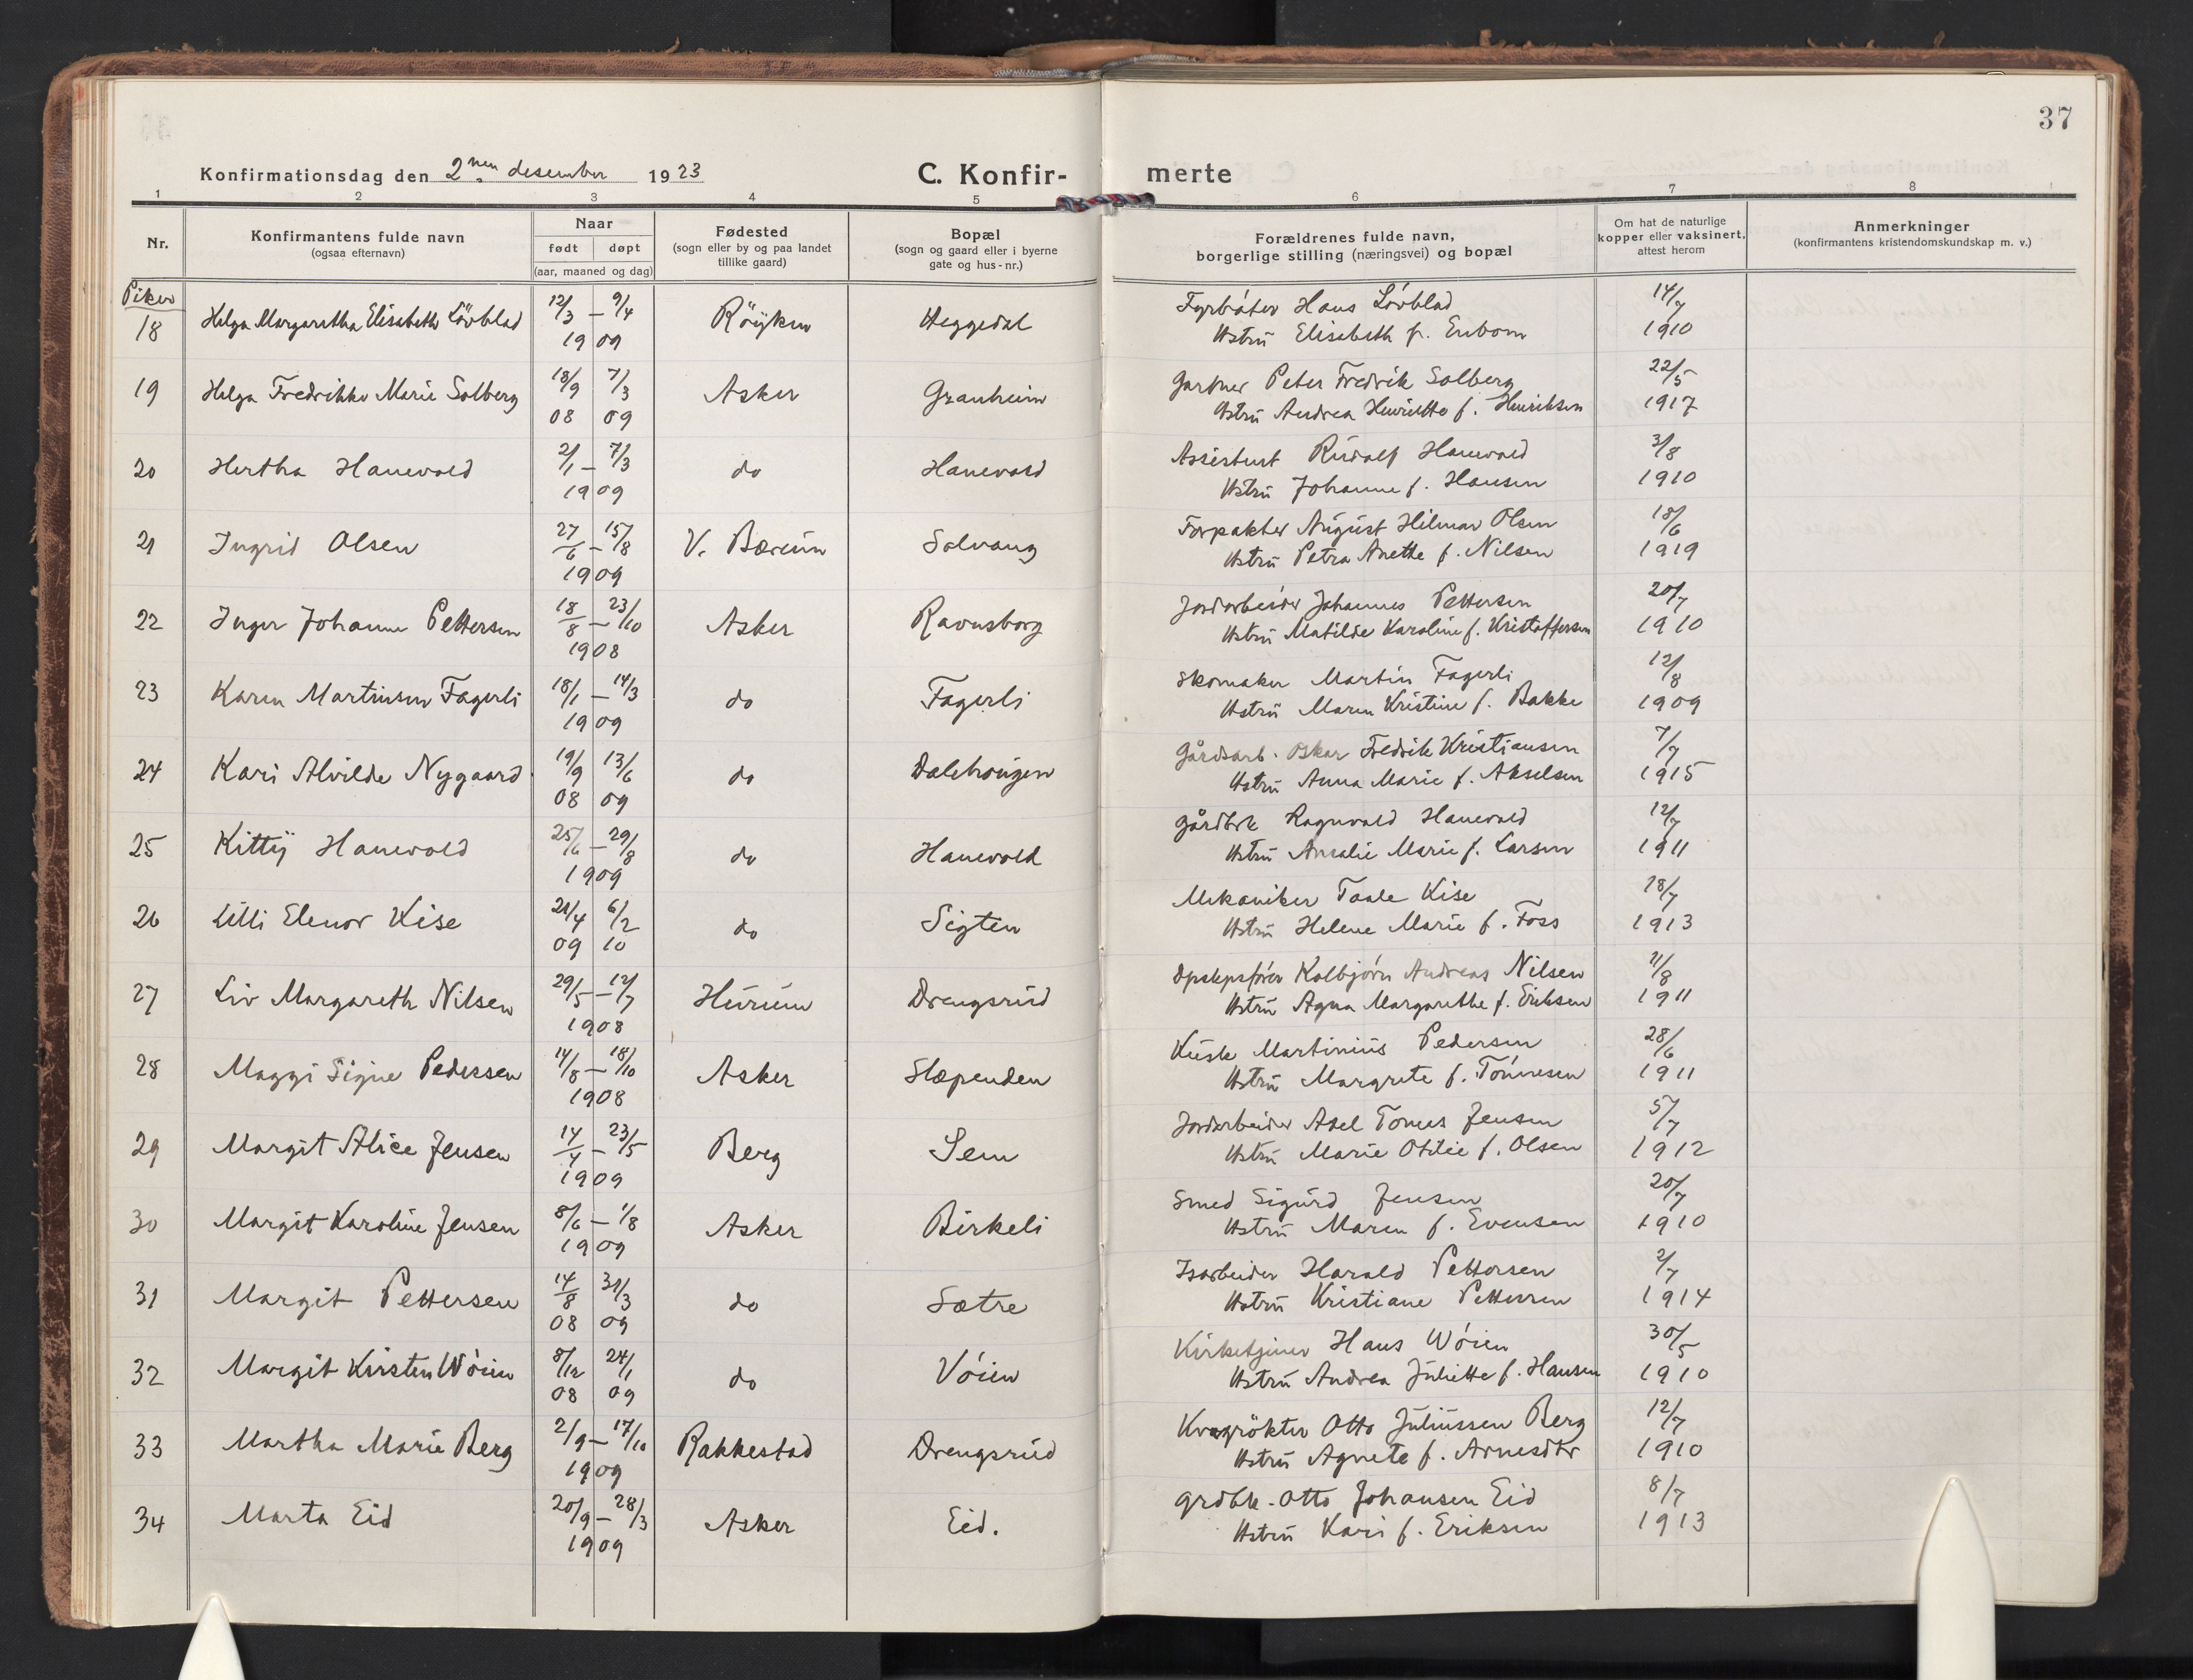 37
Konfirmationsdag den 2nen desember 1923
C. Konfir-merte
1 2 3 4 5 6 7 8
Nr.
Konfirmantens fulde navn
(ogsaa efternavn)
Naar
født døpt
(aar, maaned og dag)
Fødested
(sogn eller by og paa landet
tillike gaard)
Bopæl
(sogn og gaard eller i byerne
gate og hus-nr.)
Forældrenes fulde navn,
borgerlige stilling (næringsvei) og bopæl
Om hat de naturlige
kopper eller vaksinert,
attest herom
Anmerkninger
(konfirmantens kristendomskundskap m. v.)
Piker
18 Helga Margaretha Elisabeth Lövblad 12/3 – 9/4 1909 Röyken Heggedal Fyrbøter Hans Lövblad 14/7
Hstru Elisabeth f. Enbom 1910
19 Helga Fredrikke Marie Solberg 18/9 08 7/3 09 Asker Granheim Gartner Peter Fredrik Solberg 22/5
Hstru Andrea Henriette f. Henriksen 1917
20 Hertha Hanevold 2/1 – 7/3 1909 do Hanevold Assistent Rudolf Hanevold 3/8
Hstru Johanne f. Hansen 1910
21 Ingrid Olsen 27/6 – 15/8 1909 V. Bærum Solvang Forpakter August Hilmar Olsen 18/6
Hstru Petra Anette f. Nilsen 1919
22 Inger Johanne Pettersen 18/8 – 23/10 1908 Asker Ravnsborg Jordarbeider Johannes Pettersen 20/7
Hstru Matilde Karoline f. Kristoffersen 1910
23 Karen Martinsen Fagerli 18/1 – 14/3 1909 do Fagerli Skomaker Martin Fagerli 12/8
Hstru Maren Kristine f. Bakke 1909
24 Kari Alvilde Nygaard 19/9 08 13/6 09 do Dalehaugen Gårdsarb. Oskar Fredrik Kristiansen 7/7
Hstru Anna Marie f. Akselsen 1915
25 Kitty Hanevold 25/6 – 29/8 1909 do Hanevold Gårdbr Ragnvald Hanevold 12/7
Hstru Amalie Marie f. Larsen 1911
26 Lilli Elenor Kise 21/4 09 6/2 10 do Sigten Mekaniker Taale Kise 18/7
Hstru Helene Marie f. Foss 1913
27 Liv Margareth Nilsen 29/5 – 12/7 1908 Hurum Drengsrud Kolbjørn Andreas Nilsen 11/8
Hstru Agna Margarethe f. Eriksen 1911
28 Maggi Signe Pedersen 14/8 – 18/10 1908 Asker Slæpenden Kusk Martinius Pedersen 28/6
Hstru Margrete f. Tönnesen 1911
29 Margit Alice Jensen 14/4 – 23/5 1909 Berg Sem Jordarbeider Axel Tomes Jensen 5/7
Hstru Marie Otilie f. Olsen 1912
30 Margit Karoline Jensen 8/6 – 1/8 1909 Asker Birkeli Smed Sigurd Jensen 20/7
Hstru Maren f. Evensen 1910
31 Margit Pettersen 14/8 08 31/3 09 do Sætre Isarbeider Harald Pettersen 2/7
Hstru Kristiane Pettersen 1914
32 Margit Kirsten Wöien 8/12 08 24/1 09 do Vöien Kirketjener Hans Wöien 30/5
Hstru Andrea Juliette f. Hansen 1910
33 Martha Marie Berg 2/9 – 17/10 1909 Rakkestad Drengsrud Kvægrökter Otto Juliussen Berg 12/7
Hstru Agnete f. Arnesdtr 1910
34 Marta Eid 20/9 – 28/3 1909 Asker Eid. Grdbr. Otto Johansen Eid 8/7
Hstru Kari f. Eriksen 1913